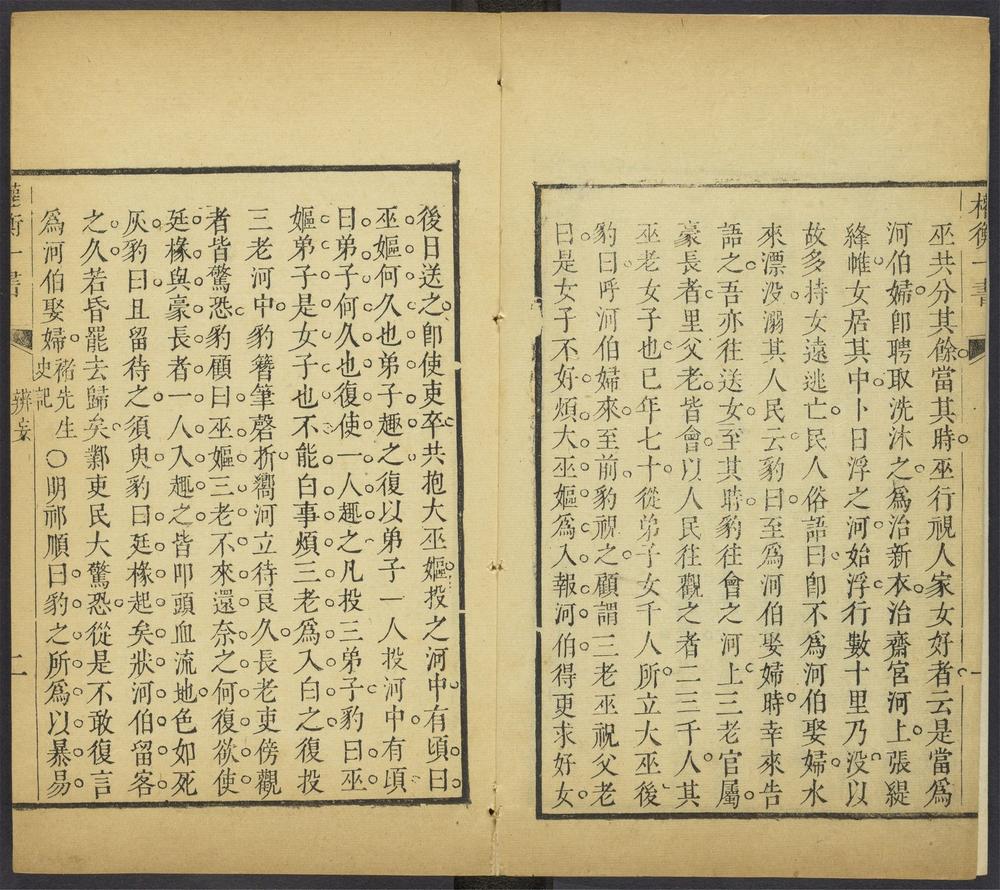 權衡一書
一
巫共分其餘當其時巫行視人家女好者云是當爲
河伯婦卽聘取洗沐之爲治新衣治齋宮河上張緹
絳帷女居其中卜日浮之河始浮行數十里乃没以
故多持女遠逃亡民人俗語曰卽不爲河伯娶婦水
來漂没溺其人民云豹曰至爲河伯娶婦時幸來告
語之吾亦往送女至其時豹往會之河上三老官屬
豪長者里父老皆會以人民往觀之者二三千人其
巫老女子也巳年七十從弟子女千人所立大巫後
豹曰呼河伯婦來至前豹視之顧謂三老巫祝父老
曰是女子不好煩大巫嫗爲入報河伯得更求好女
後日送之卽使吏卒共抱大巫嫗投之河中有頃曰
巫嫗何久也弟子趣之復以弟子一人投河中有頃
曰弟子何久也復使一人趣之凡投三弟子豹曰巫
嫗弟子是女子也不能白事煩三老爲入白之復投
三老河中豹簪筆磬折嚮河立待良久長老吏傍觀
者皆驚恐豹顧曰巫嫗三老不來還奈之何復欲使
廷椽與豪長者一人入趣之皆叩頭血流地色如死
灰豹曰且留待之須臾豹曰廷椽起矣狀河伯留客
之久若昏罷去歸矣鄴吏民大驚恐從是不敢復言
爲河伯娶婦 褚先生史記 〇明祁順曰豹之所爲以暴易
權衡一書
辨妄
二